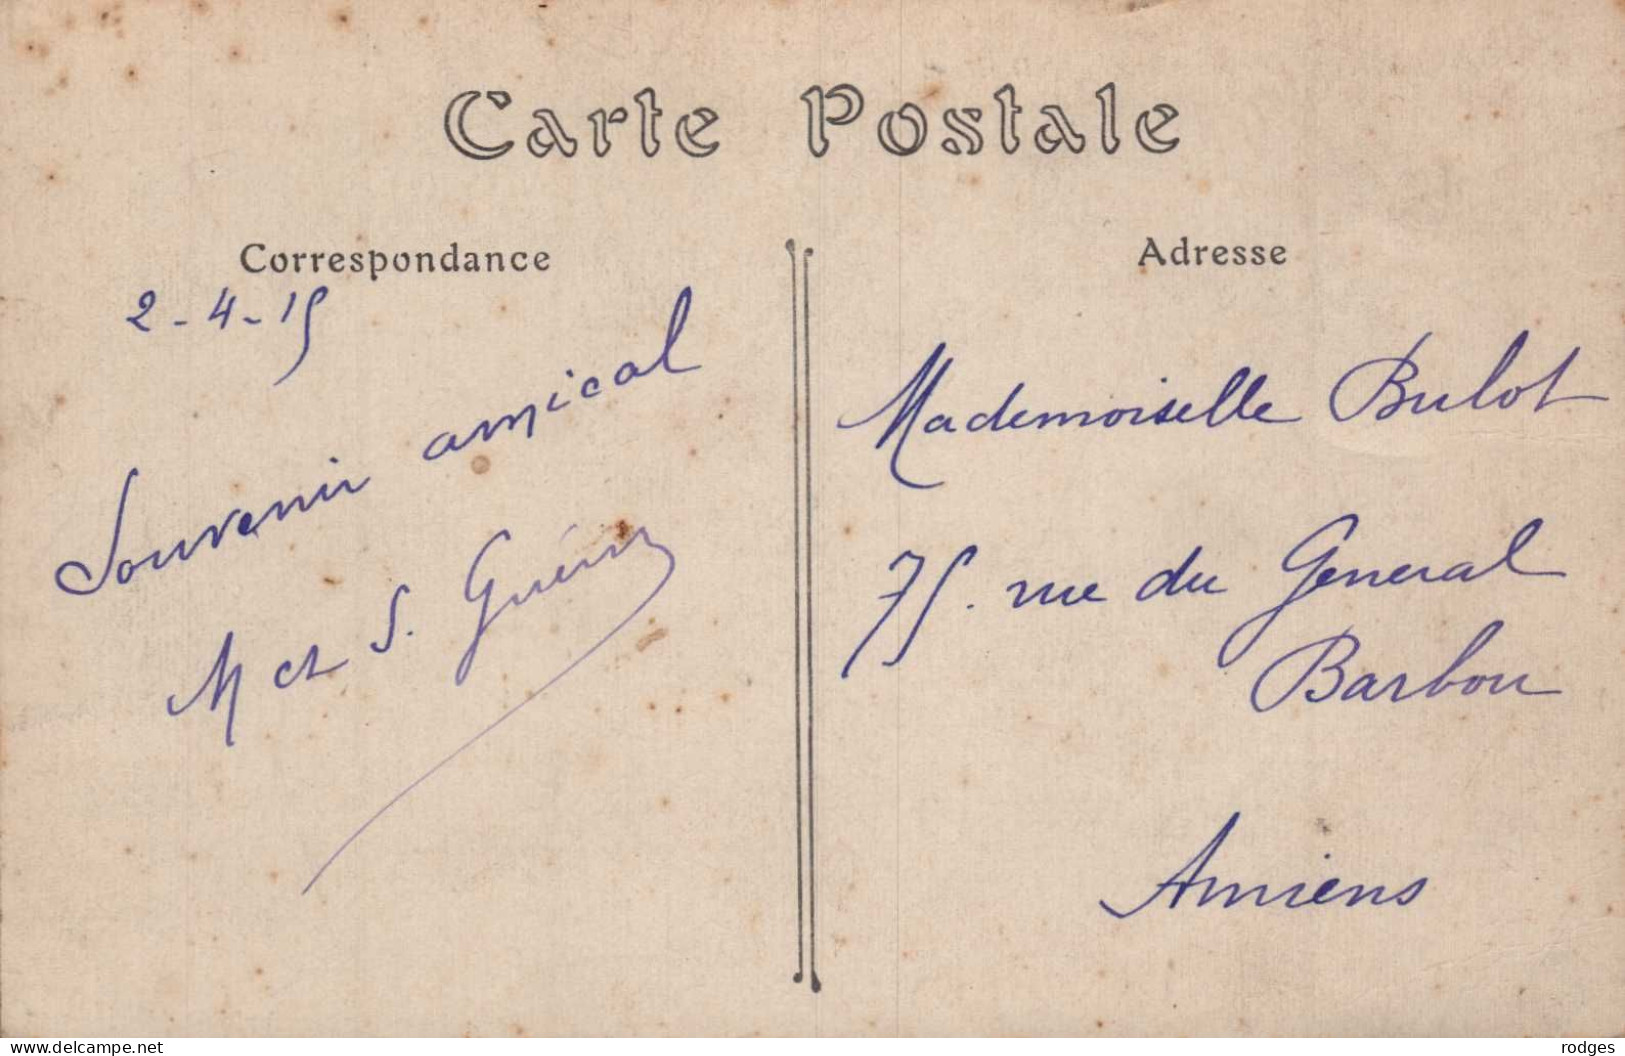 Carte Postale
Correspondance
2-4-15
Souvenir amical
M et S. Guérin
Adresse
Mademoiselle Bulot
75. rue du General
Barbou
Amiens
www.delcampe.net
rodges